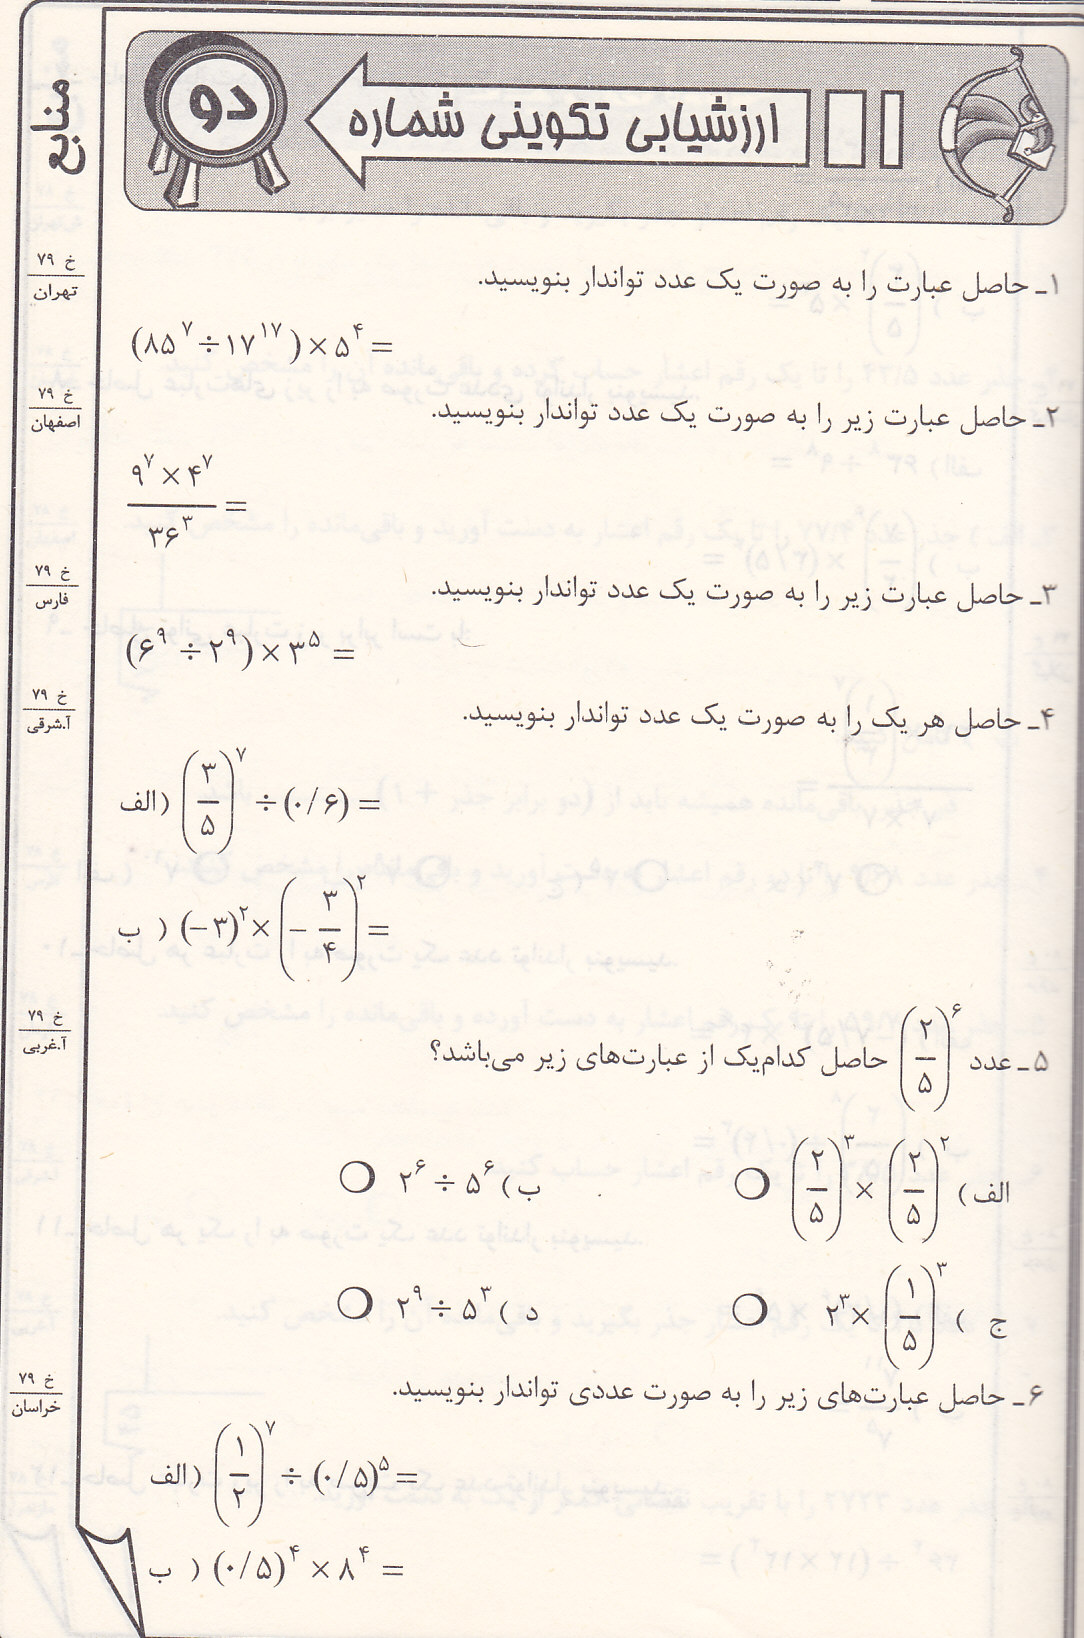 ارزشیابی تکوینی شماره دو
منابع
خ ۷۹
تهران
۱ـ حاصل عبارت را به صورت یک عدد تواندار بنویسید.
(۸۵^۷ ÷ ۱۷^۱۷) × ۵^۴ =
خ ۷۹
اصفهان
۲ـ حاصل عبارت زیر را به صورت یک عدد تواندار بنویسید.
(۹^۷ × ۴^۷)/(۳۶^۳) =
خ ۷۹
فارس
۳ـ حاصل عبارت زیر را به صورت یک عدد تواندار بنویسید.
(۶^۹ ÷ ۲^۹) × ۳^۵ =
خ ۷۹
آ.شرقی
۴ـ حاصل هر یک را به صورت یک عدد تواندار بنویسید.
الف) (۳/۵)^۷ ÷ (۰/۶) =
ب) (−۳)^۲ × (−۳/۴)^۲ =
خ ۷۹
آ.غربی
۵ـ عدد (۲/۵)^۶ حاصل کدام‌یک از عبارت‌های زیر می‌باشد؟
الف) (۲/۵)^۳ × (۲/۵)^۲ ○ ب) ۲^۶ ÷ ۵^۶ ○
ج) ۲^۳ × (۱/۵)^۳ ○ د) ۲^۹ ÷ ۵^۳ ○
خ ۷۹
خراسان
۶ـ حاصل عبارت‌های زیر را به صورت عددی تواندار بنویسید.
الف) (۱/۲)^۷ ÷ (۰/۵)^۵ =
ب) (۰/۵)^۴ × ۸^۴ =